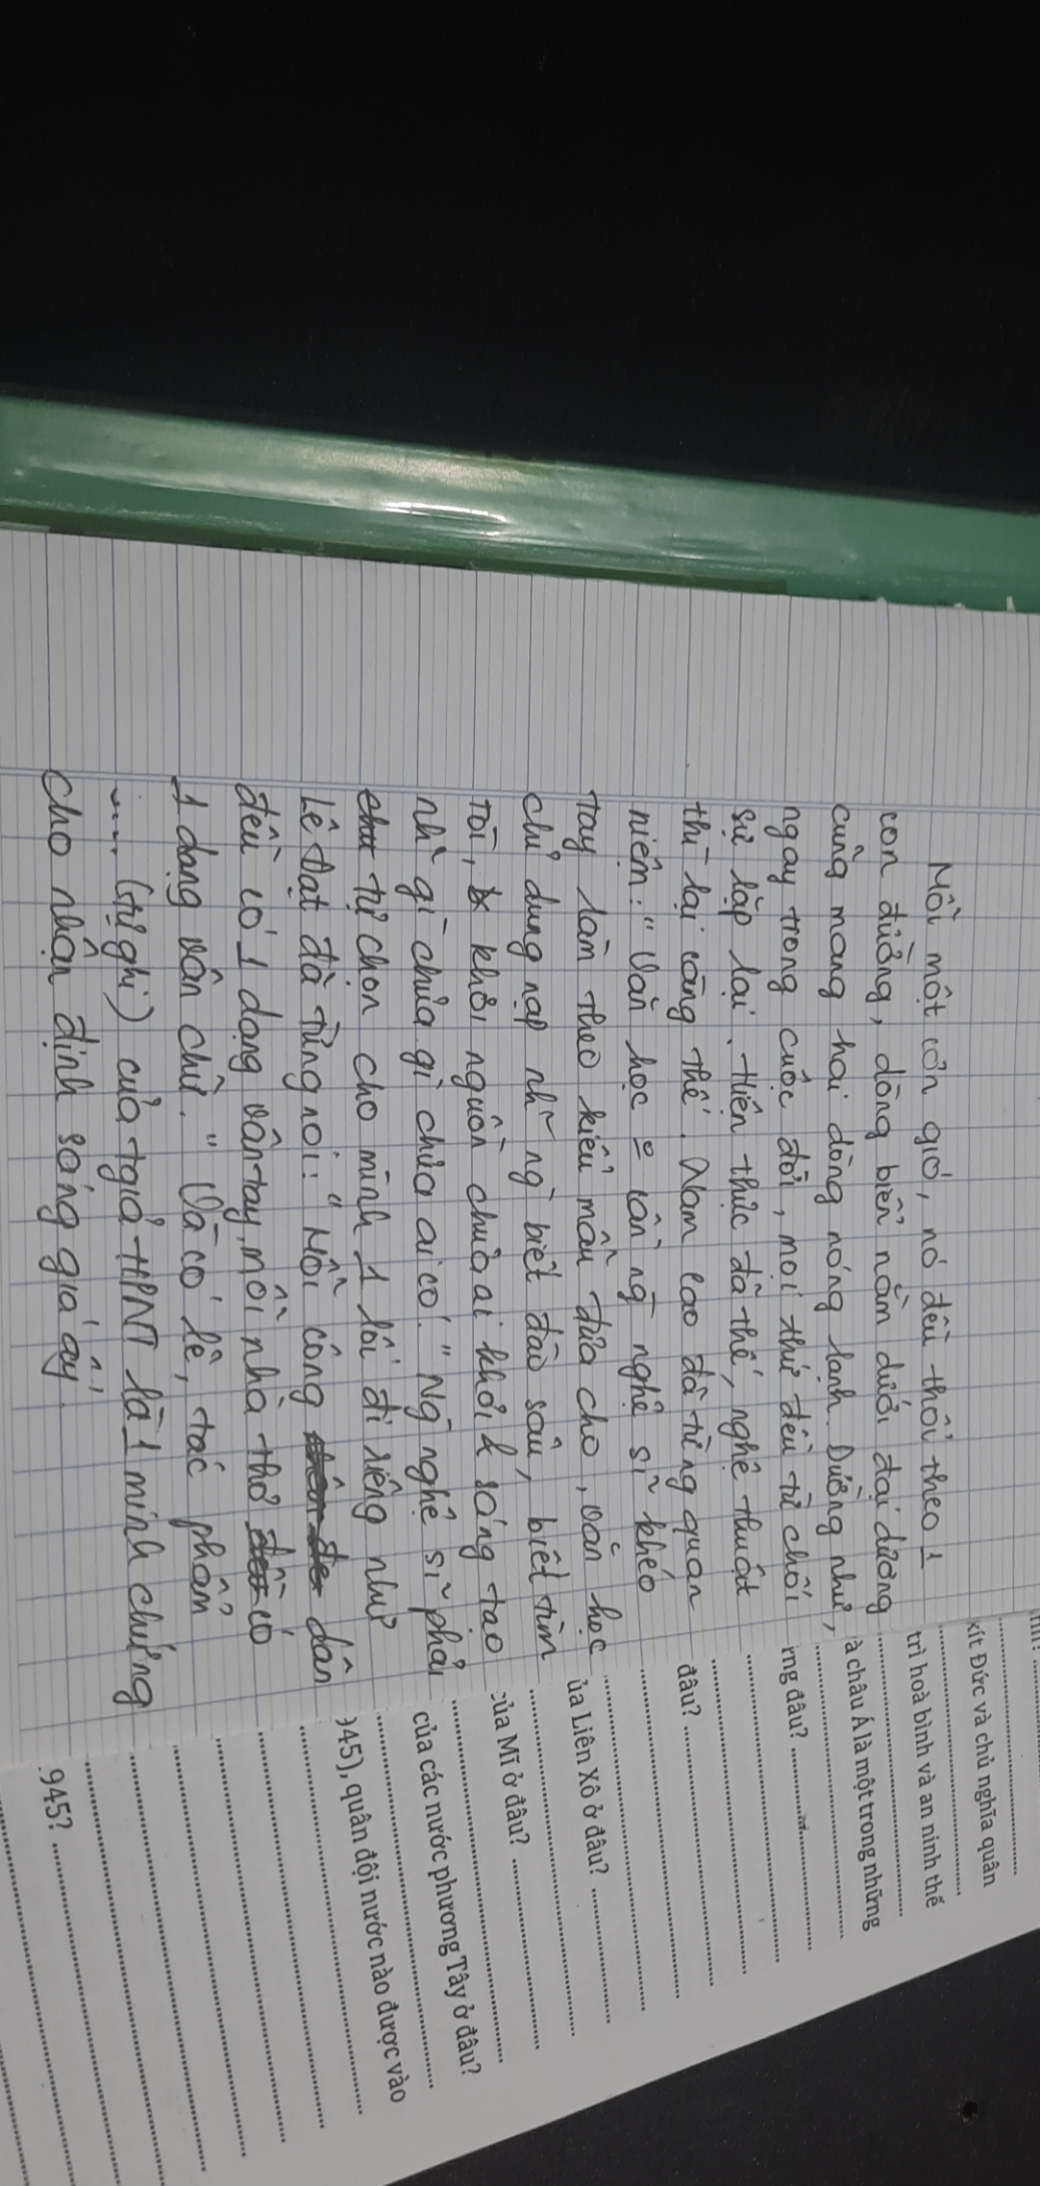 Mỗi một cơn gió, nó đều thổi theo 1
con đường, dòng biển nằm dưới đại dương
cũng mang hai dòng nóng lạnh. Dường như,
ngay trong cuộc đời, mọi thứ đều từ chối
sự lặp lại. Hiện thực đã thế, nghệ thuật
thì lại càng thế. Nam Cao đã từng quan
niệm: "Văn học 0 cần ng nghệ sĩ khéo
tay làm theo kiểu mẫu đưa cho, văn học
chỉ dung nạp nh~ ng biết đào sâu, biết tìm
tòi, khơi nguồn chưa ai khơi & sáng tạo
nh~ gì chưa gì chưa ai có." Ng nghệ sĩ phải
tự chọn cho mình 1 lối đi riêng như
Lê Đạt đã từng nói: "Mỗi công dân
đều có 1 dạng vân tay, mỗi nhà thơ có
1 dạng vân chữ." Và có lẽ, tác phẩm
..... (tự ghi) của tgiả HPNT là 1 minh chứng
cho nhận định sáng giá ấy
xít Đức và chủ nghĩa quân
trì hoà bình và an ninh thế
à châu Á là một trong những
ng đâu?
đâu?
ủa Liên Xô ở đâu?
của Mĩ ở đâu?
của các nước phương Tây ở đâu?
945), quân đội nước nào được vào
945?